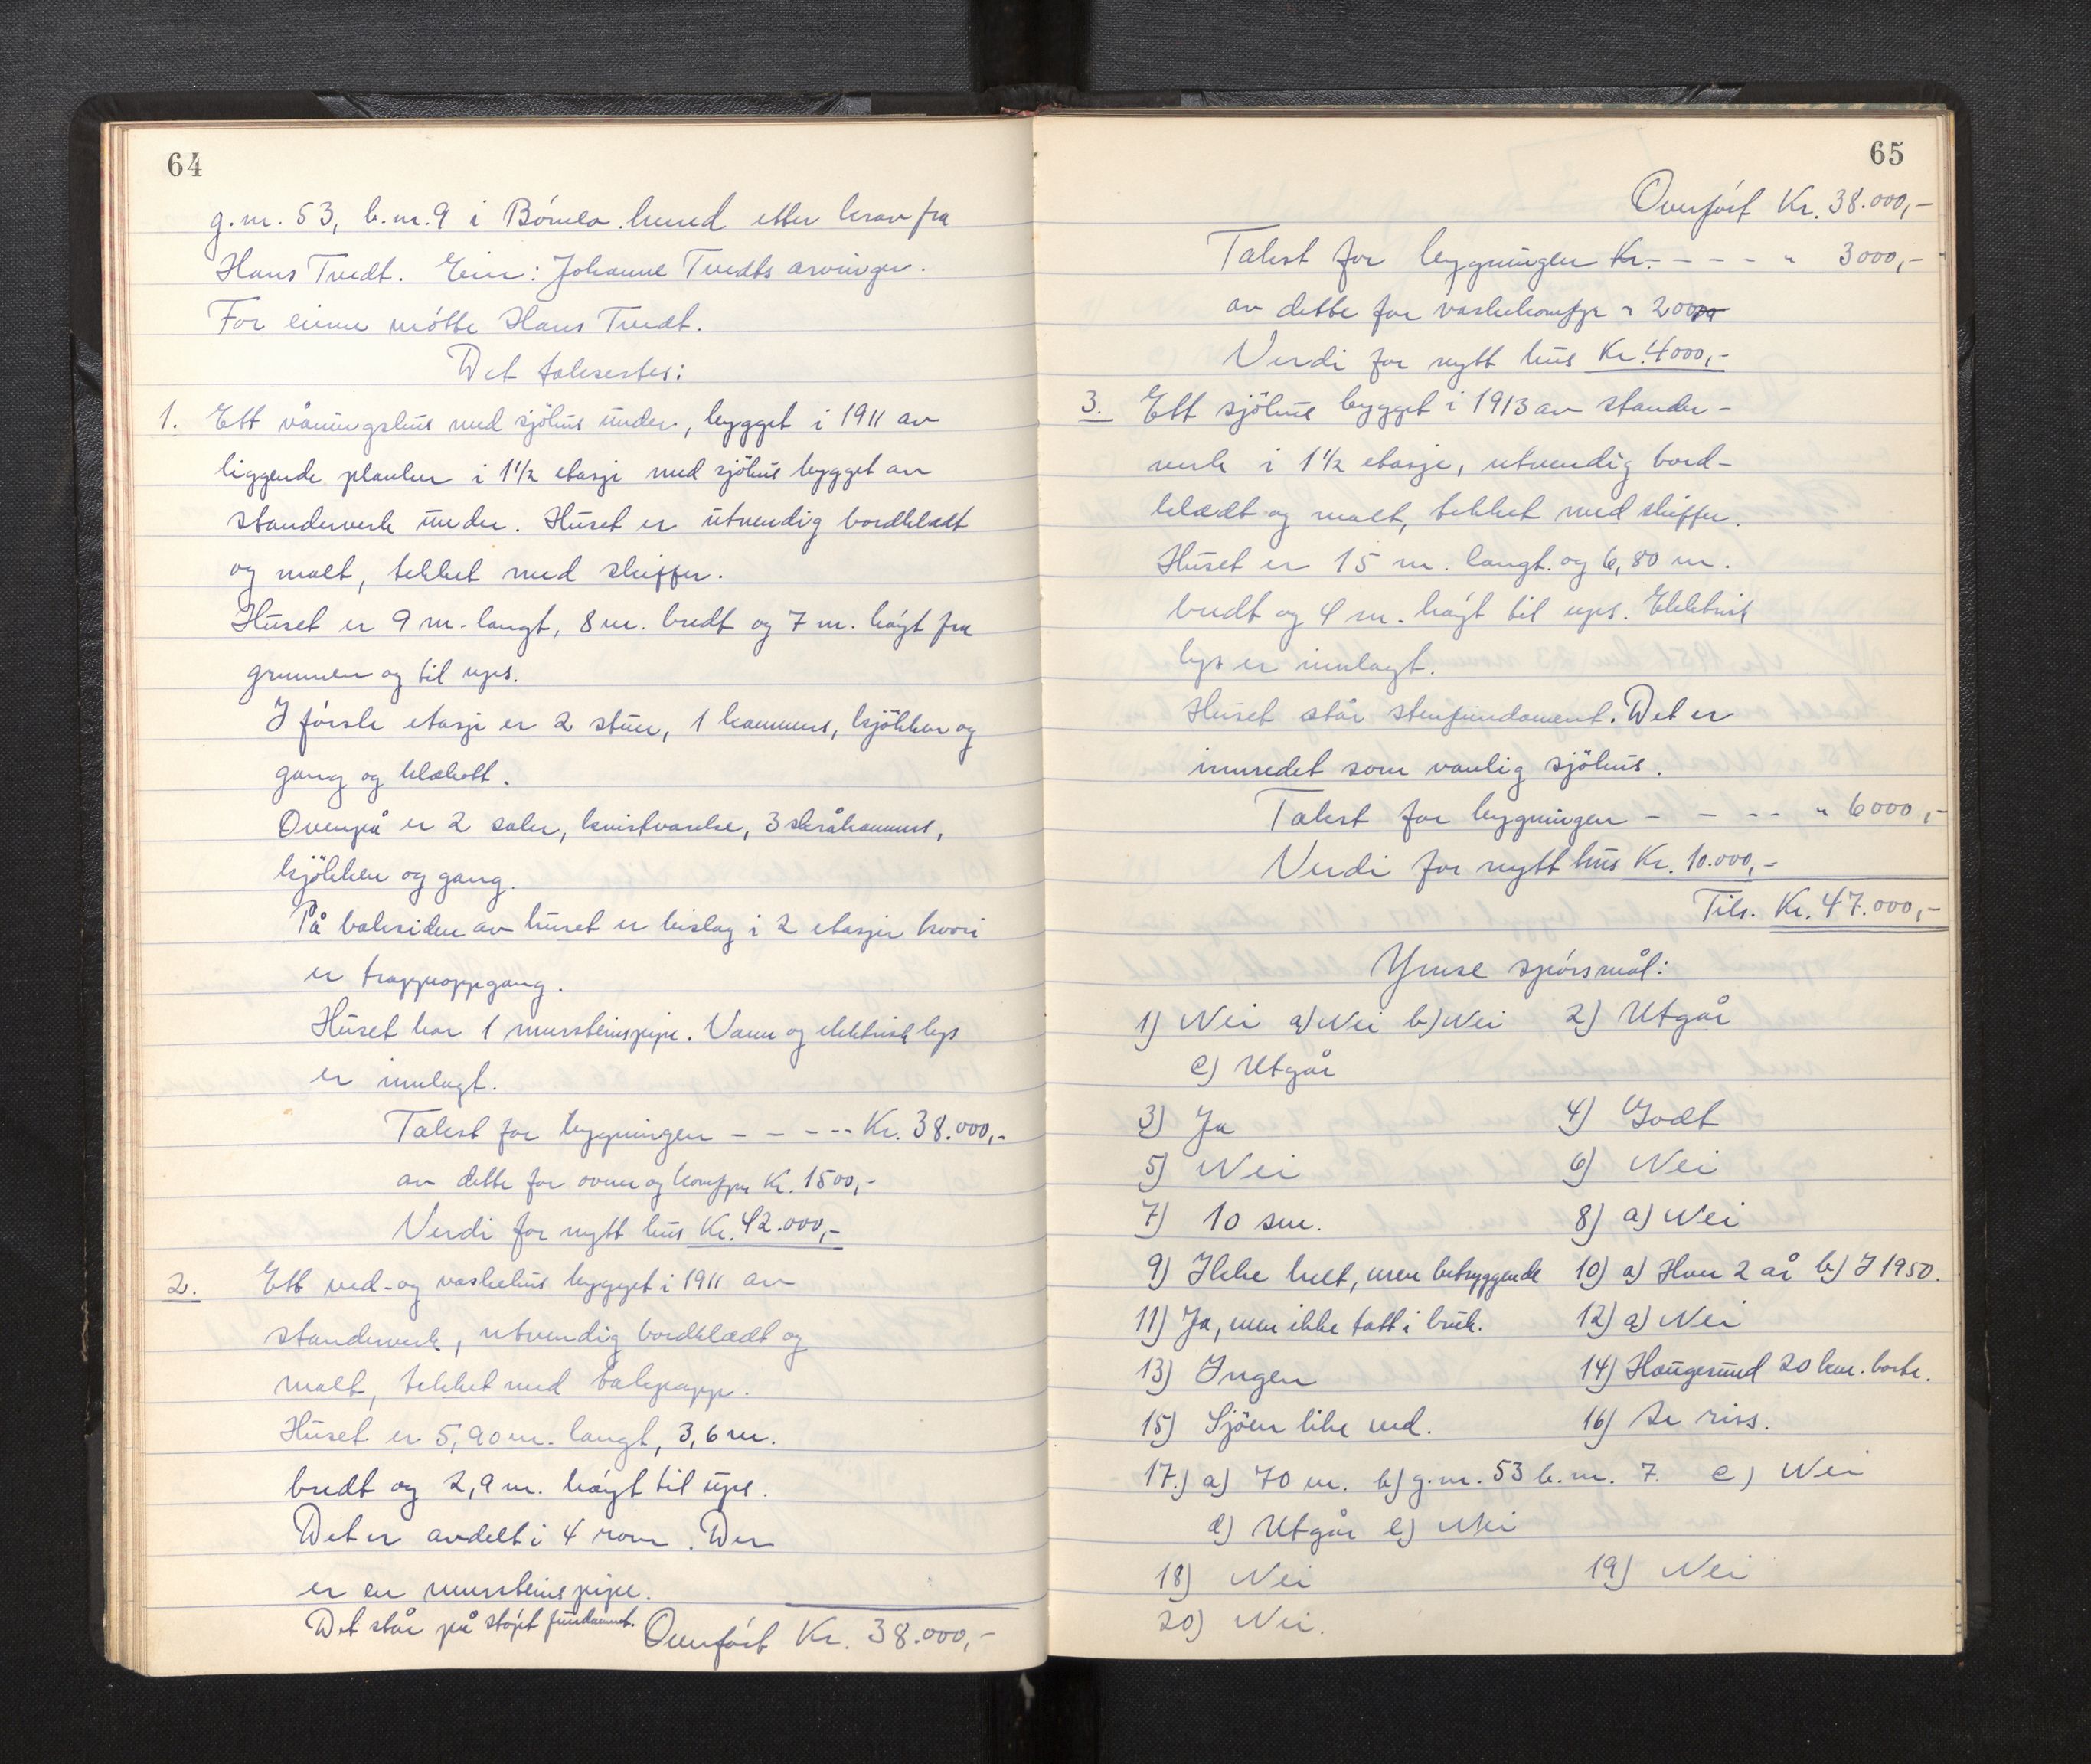 64
g.nr. 53, b.nr. 9 i Bömlo herred etter krav fra
Hans Tvedt. Eier: Johanne Tvedts arvinger.
For eierne mötte Hans Tvedt.
Det taksertes:
1. Ett våningshus med sjöhus under, bygget i 1911 av
liggende planker i 1 1/2 etasje med sjöhus bygget av
standerverk under. Huset er utvendig bordklædt
og malt, tekket med skiffer.
Huset er 9 m. langt, 8 m. bredt og 7 m. höyt fra
grunnen og til ups.
I förste etasje er 2 stuer, 1 kammers, kjökken og
gang og klækott.
Ovenpå er 2 saler, kvistværelse, 3 skråkammers,
kjökken og gang.
På baksiden av huset er bislag i 2 etasjer hvori
er trappeoppgang.
Huset har 1 murstenspipe. Vann og elektrisk lys
er innlagt.
Takst for bygningen - - - -- Kr. 38.000,-
av dette for ovner og komfyr Kr. 1500,-
Verdi for nytt hus Kr. 42.000,-
2. Ett ved- og vaskehus bygget i 1911 av
standerverk, utvendig bordklædt og
malt, tekket med takpapp.
Huset er 5,90 m. langt, 3,6 m.
bredt og 2,9 m. höyt til ups.
Det er avdelt i 4 rom. Der
er en murstenspipe.
Det står på stöpt fundament.
Overfört Kr. 38.000,-
65
Overfört Kr. 38.000,-
Takst for bygningen Kr. - - - - " 3000,-
av dette for vaskekomfyr " 200
Verdi for nytt hus Kr. 4000,-
3. Ett sjöhus bygget i 1913 av stander-
verk i 1 1/2 etasje, utvendig bord-
klædt og malt, tekket med skiffer.
Huset er 15 m. langt. og 6,80 m.
bredt og 4 m. höyt til ups. Elektrisk
lys er innlagt.
Huset står stenfundament. Det er
innredet som vanlig sjöhus.
Takst for bygningen - - - - " 6000,-
Verdi for nytt hus Kr. 10.000,-
Tils. Kr. 47.000,-
Ymse spörsmål:
1) Nei a) Nei b) Nei 2) Utgår
c) Utgår
3) Ja 4) Godt
5) Nei 6) Nei
7) 10 sm. 8) a) Nei
9) Ikke helt, men betryggende 10) a) Hver 2 år b) I 1950.
11) Ja, men ikke tatt i bruk. 12) a) Nei
13) Ingen 14) Haugesund 20 km. borte.
15) Sjöen like ved. 16) Se riss.
17.) a) 70 m. b) g.nr. 53 b.nr. 7. c) Nei
d) Utgår e) Nei
18) Nei 19) Nei
20) Nei.